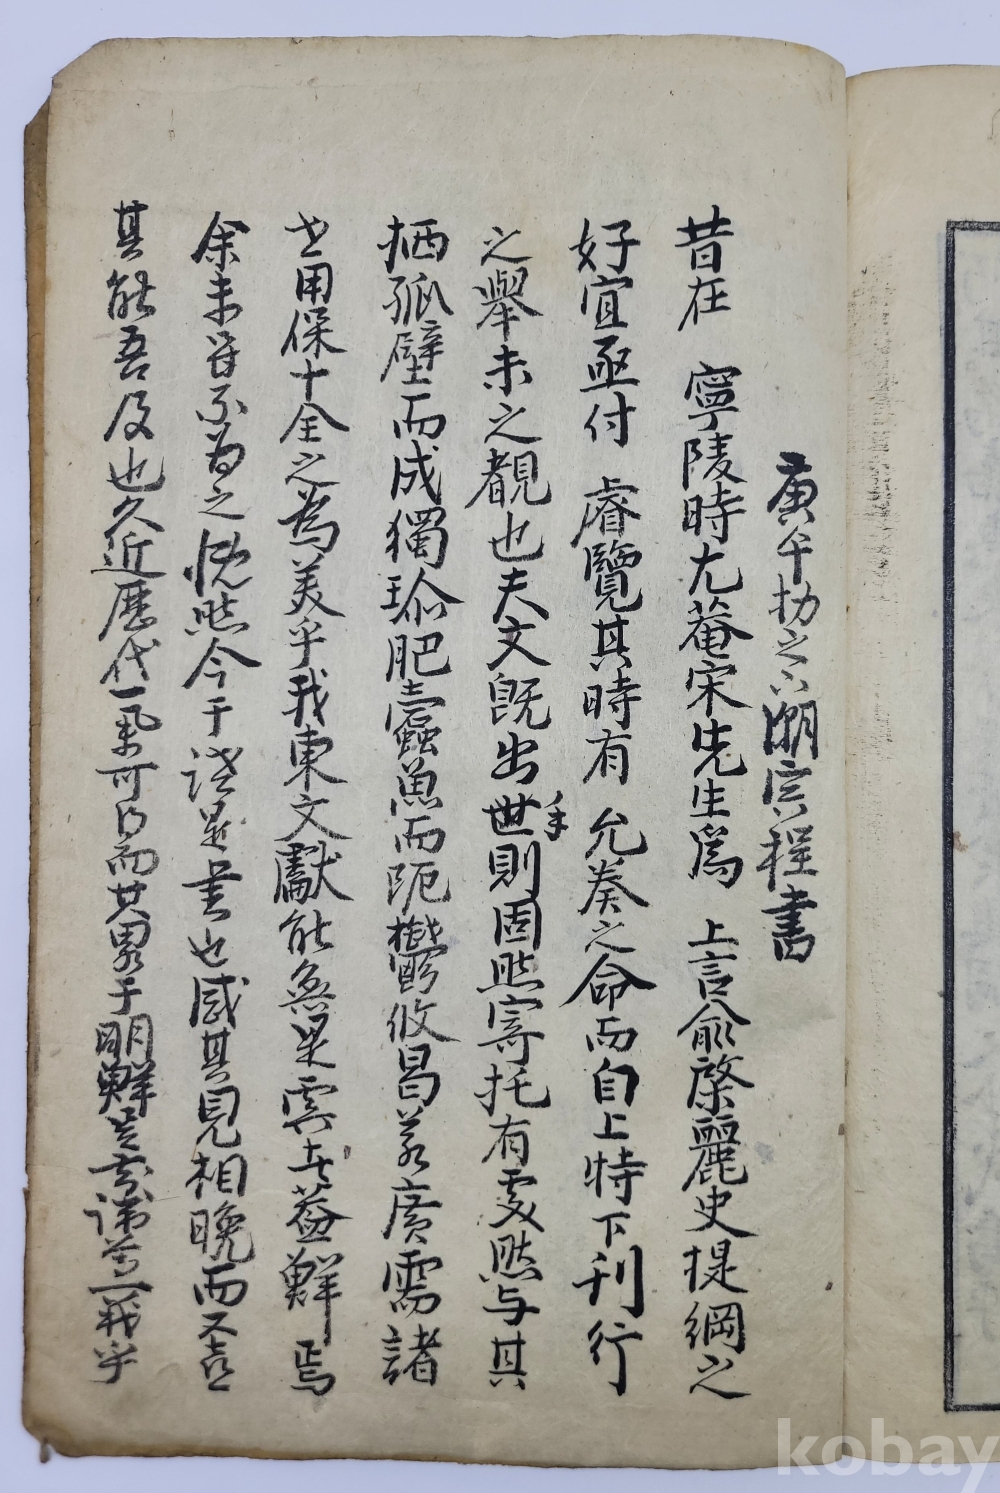 庚午 之 潮 程書
昔在 寧陵時尤菴宋先生爲 上言俞棨麗史提綱之
好宜亟付 睿覽其時有 允奏之命而自上特下刊行
之舉未之覩也夫文旣出世手則固然寄托有處然与其
栖孤壁而成獨瑜肥蠹魚而阨鬱攸曷若廣需諸
世用保十全之為美乎我東文獻能無是 哉蓋鮮焉
余未嘗不為之慨然今于 是書也感其見相晚而又喜
其能吾及也久近歷代一氣可 而其畧于明鮮
kobay